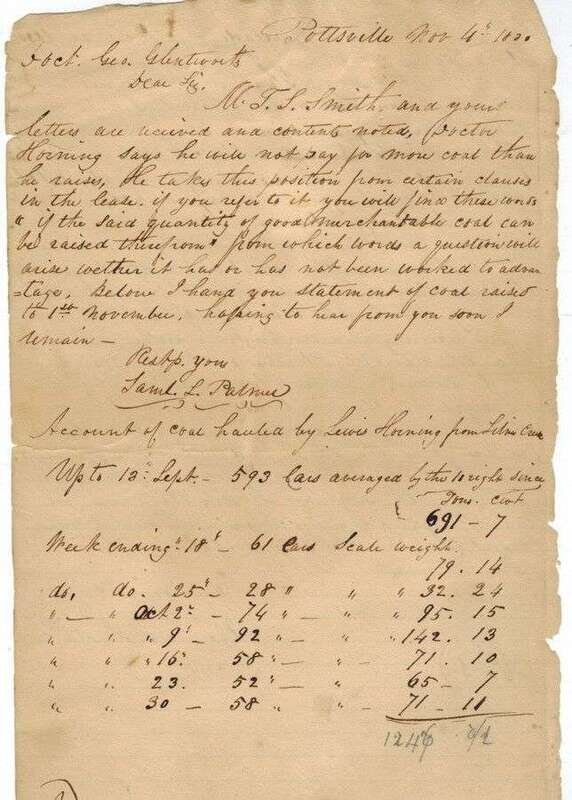 Pottsville Nov 4th
Doct. Geo. Glentworth
Dear Sir.
M. T. S. Smith and your
letters are received and contents noted, Doctor
Horning says he will not pay for more coal than
he raises, He takes this position from certain clauses
in the lease. if you refer to it you will find these words
" if the said quantity of good merchandable coal can
be raised therefrom" from which words a question will
arise wether it has or has not been worked to advan
=tage, Below I hand you statement of coal raised
to 1st November, hoping to hear from you soon I
remain —
Respy. your
Saml. L. Palmer
Account of coal hauled by Lewis Horning from Silver Creek
Up to 12th Sept. — 593 Cars averaged by the since
Tons. cwt
691 — 7
Week ending 18th — 61 Cars Scale weight.
79 . 14
do, do. 25th — 28 " " " 32 . 24
" — " Oct 2d — 74 " — " 95 . 15
" " 9th — 92 " — " 142 . 13
" " " 16th 58 " — " 71 . 10
" " 23. 52 " — " 65 — 7
" " 30 — 58 " " — 71 — 11
1246